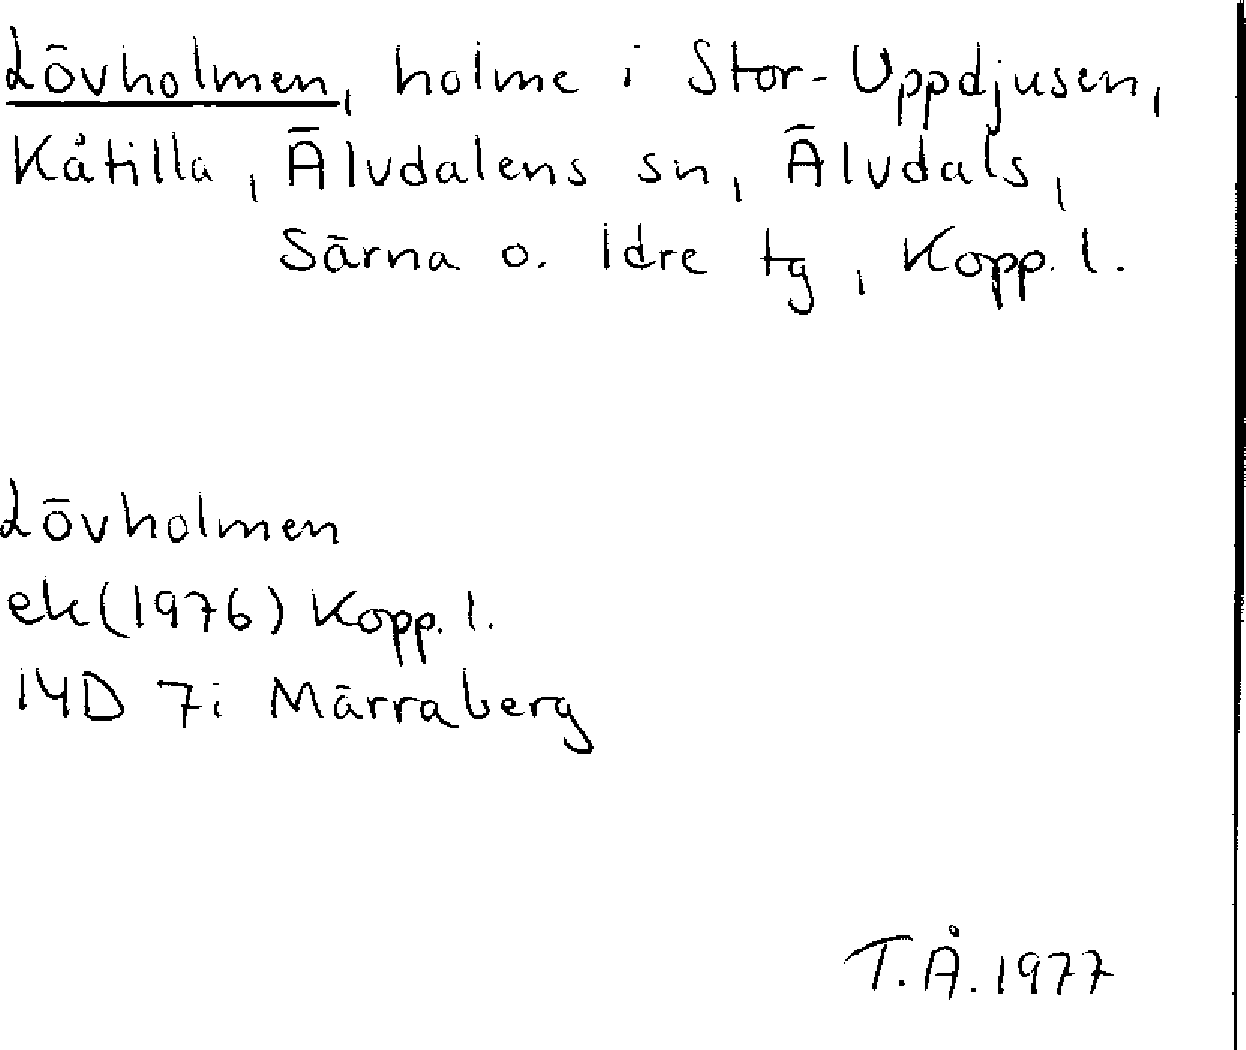 Lövholmen, holme i Stor-Uppdjusen,
Kåtilla, Älvdalens sn, Älvdals,
Särna o. Idre tg, Kopp. l.
Lövholmen
ek (1976) Kopp. l.
14D 7i Märraberg
T.Å. 1977